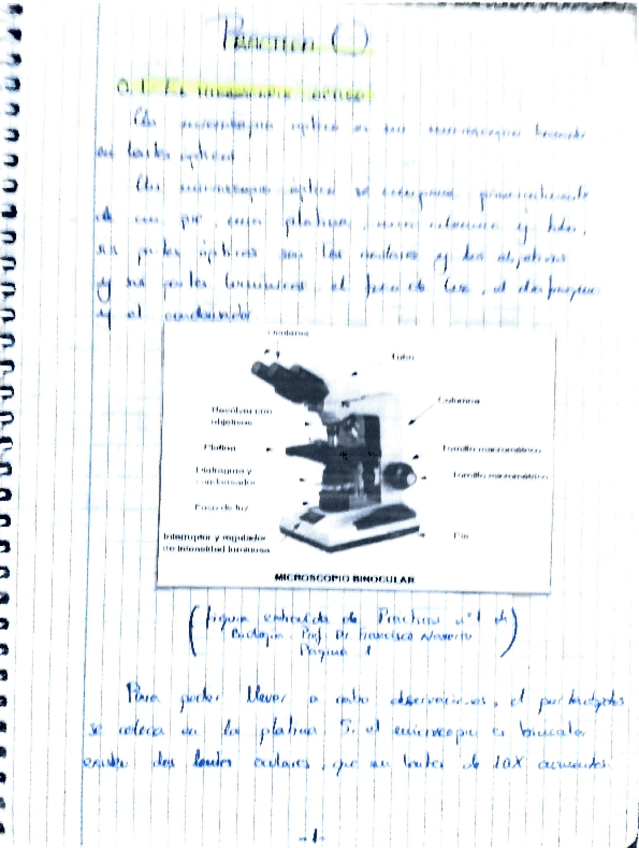 Practica 1
0.1 El microscopio óptico
Un microscopio óptico es un microscopio basado
en lentes ópticas
Un microscopio óptico se compone
de un pie, una platina, una columna y tubo,
sus partes ópticas son los oculares y los objetivos
y sus partes lumínicas el foco de luz, el diafragma
y el condensador
Oculares
Tubo
Columna
Revólver con
objetivos
Platina
Tornillo macrométrico
Diafragma y
condensador
Tornillo micrométrico
Foco de luz
Interruptor y regulador
de intensidad luminosa
Pie
MICROSCOPIO BINOCULAR
(Figura extraída de Practica nº1 de
Biología. Prof. Dr. Francisco
Página 1)
Para poder llevar a cabo observaciones, el portaobjetos
se coloca en la platina Si el microscopio es binocular
existen dos lentes oculares, que son lentes de 10X aumentos
-1-